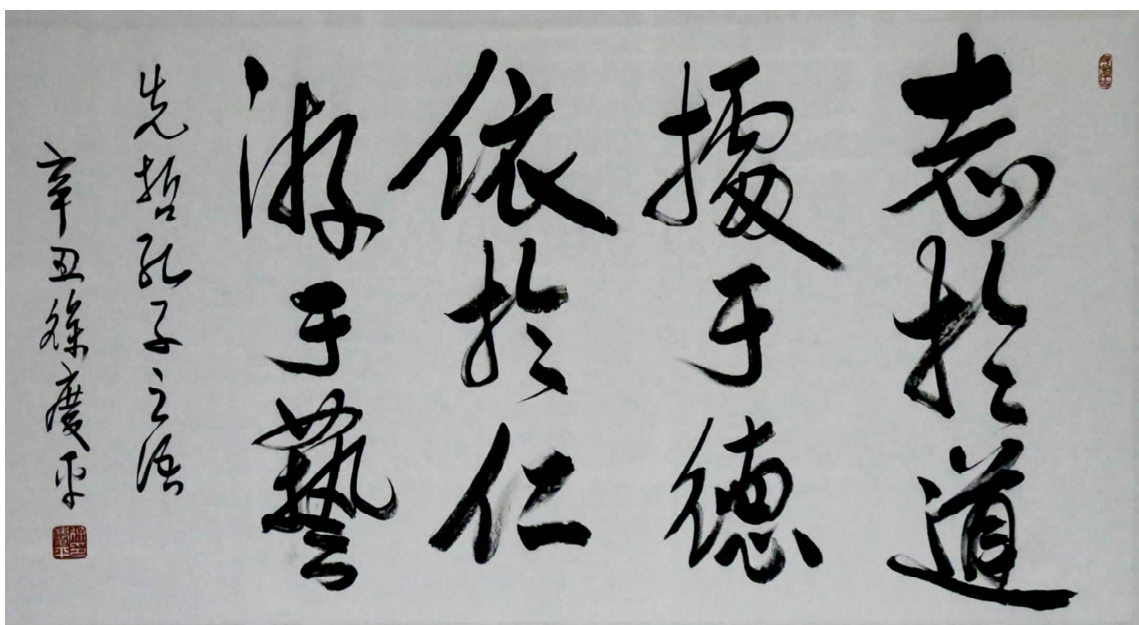 志於道
據于德
依於仁
游于藝
先哲孔子之語
辛丑徐慶平